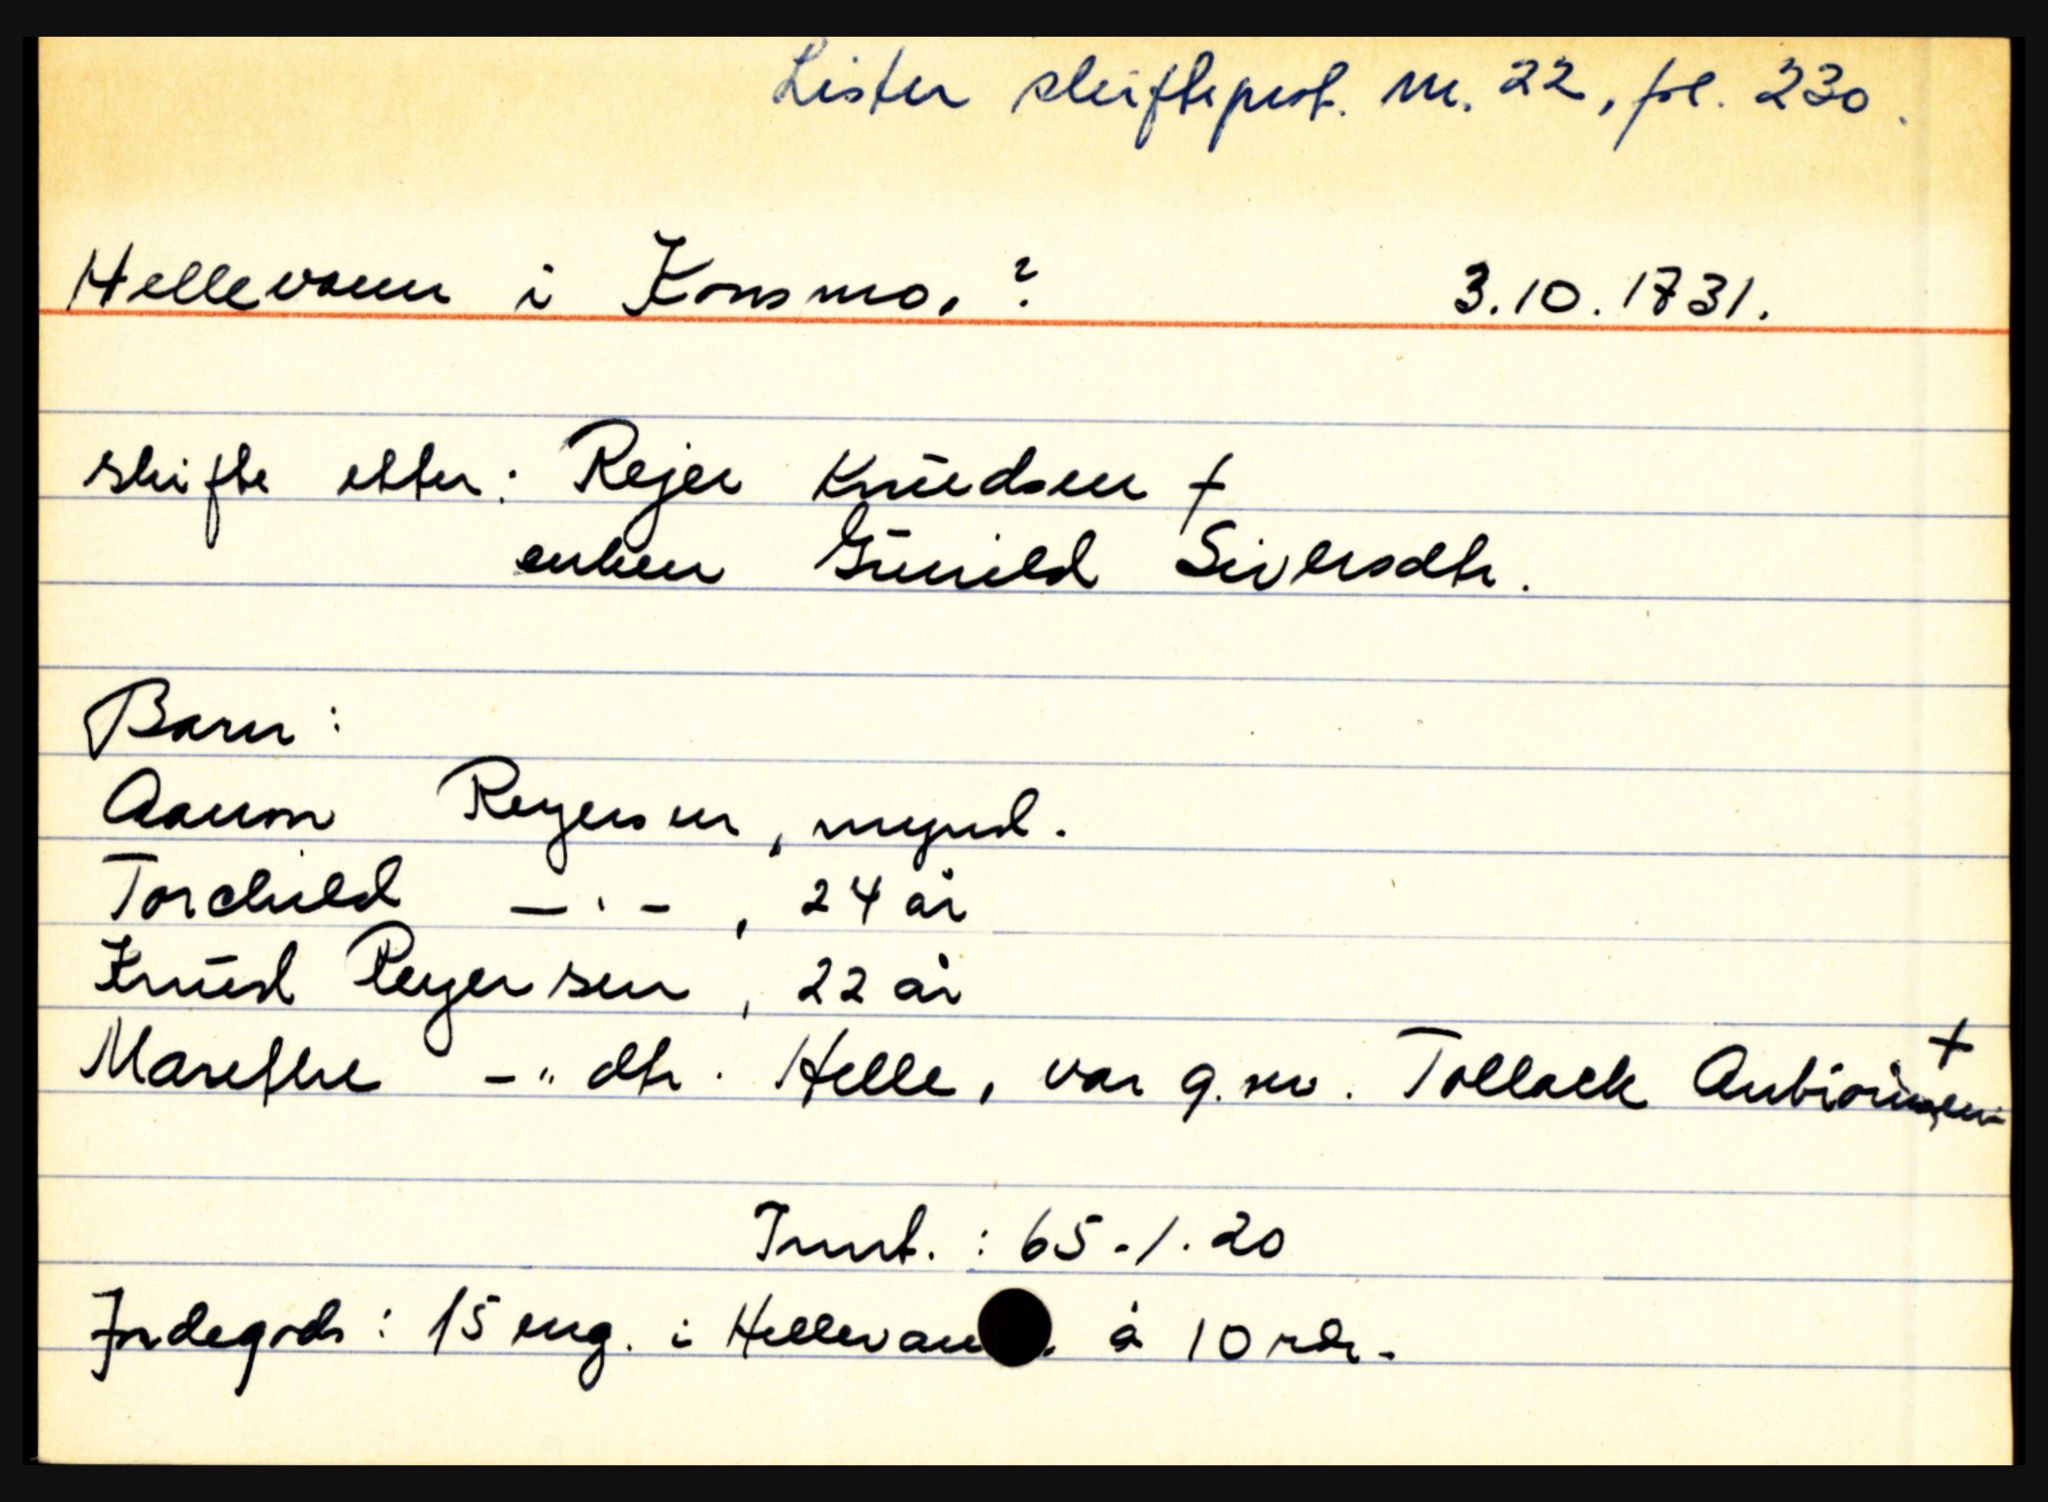 Lister skifteprot. nr. 22, fol. 230.
Hellevann i Konsmo. ? 3.10.1731.
skifte etter: Rejer Knüdsen +
enken Günild Siversdtr.
Barn:
Aanon Reyersen, mynd.
Torchild — " — , 24 år
Knüd Reyersen, 22 år
Marethe — " dtr. Helle, var g.m. Tollack Anbiørnsen +
Innt. : 65-1.20
Jordegods: 15 eng. i Hellevan . å 10 rdr.-